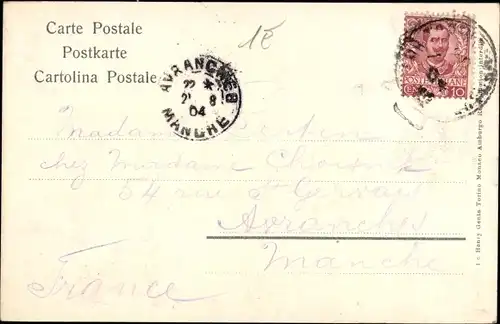 Carte Postale
Postkarte
Cartolina Postale
1E
AVRANCHES
22 *
2 8
04
MANCHE
POSTE ITALIANE
10
Madame
chez Madame
54 rue St Gervais
Avranches
Manche
France
Henry Genta Torino Monaco Amburgo